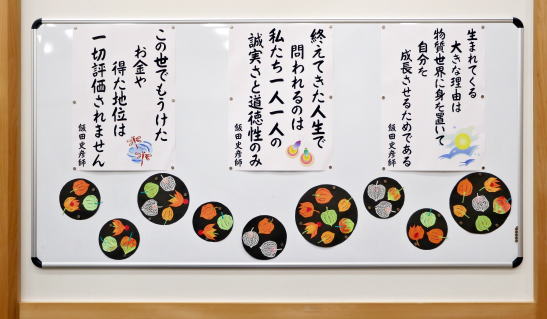 生まれてくる
大きな理由は
物質世界に身を置いて
自分を
成長させるためである
飯田史彦師
終えてきた人生で
問われるのは
私たち一人一人の
誠実さと道徳性のみ
飯田史彦師
この世でもうけた
お金や
得た地位は
一切評価されません
飯田史彦師